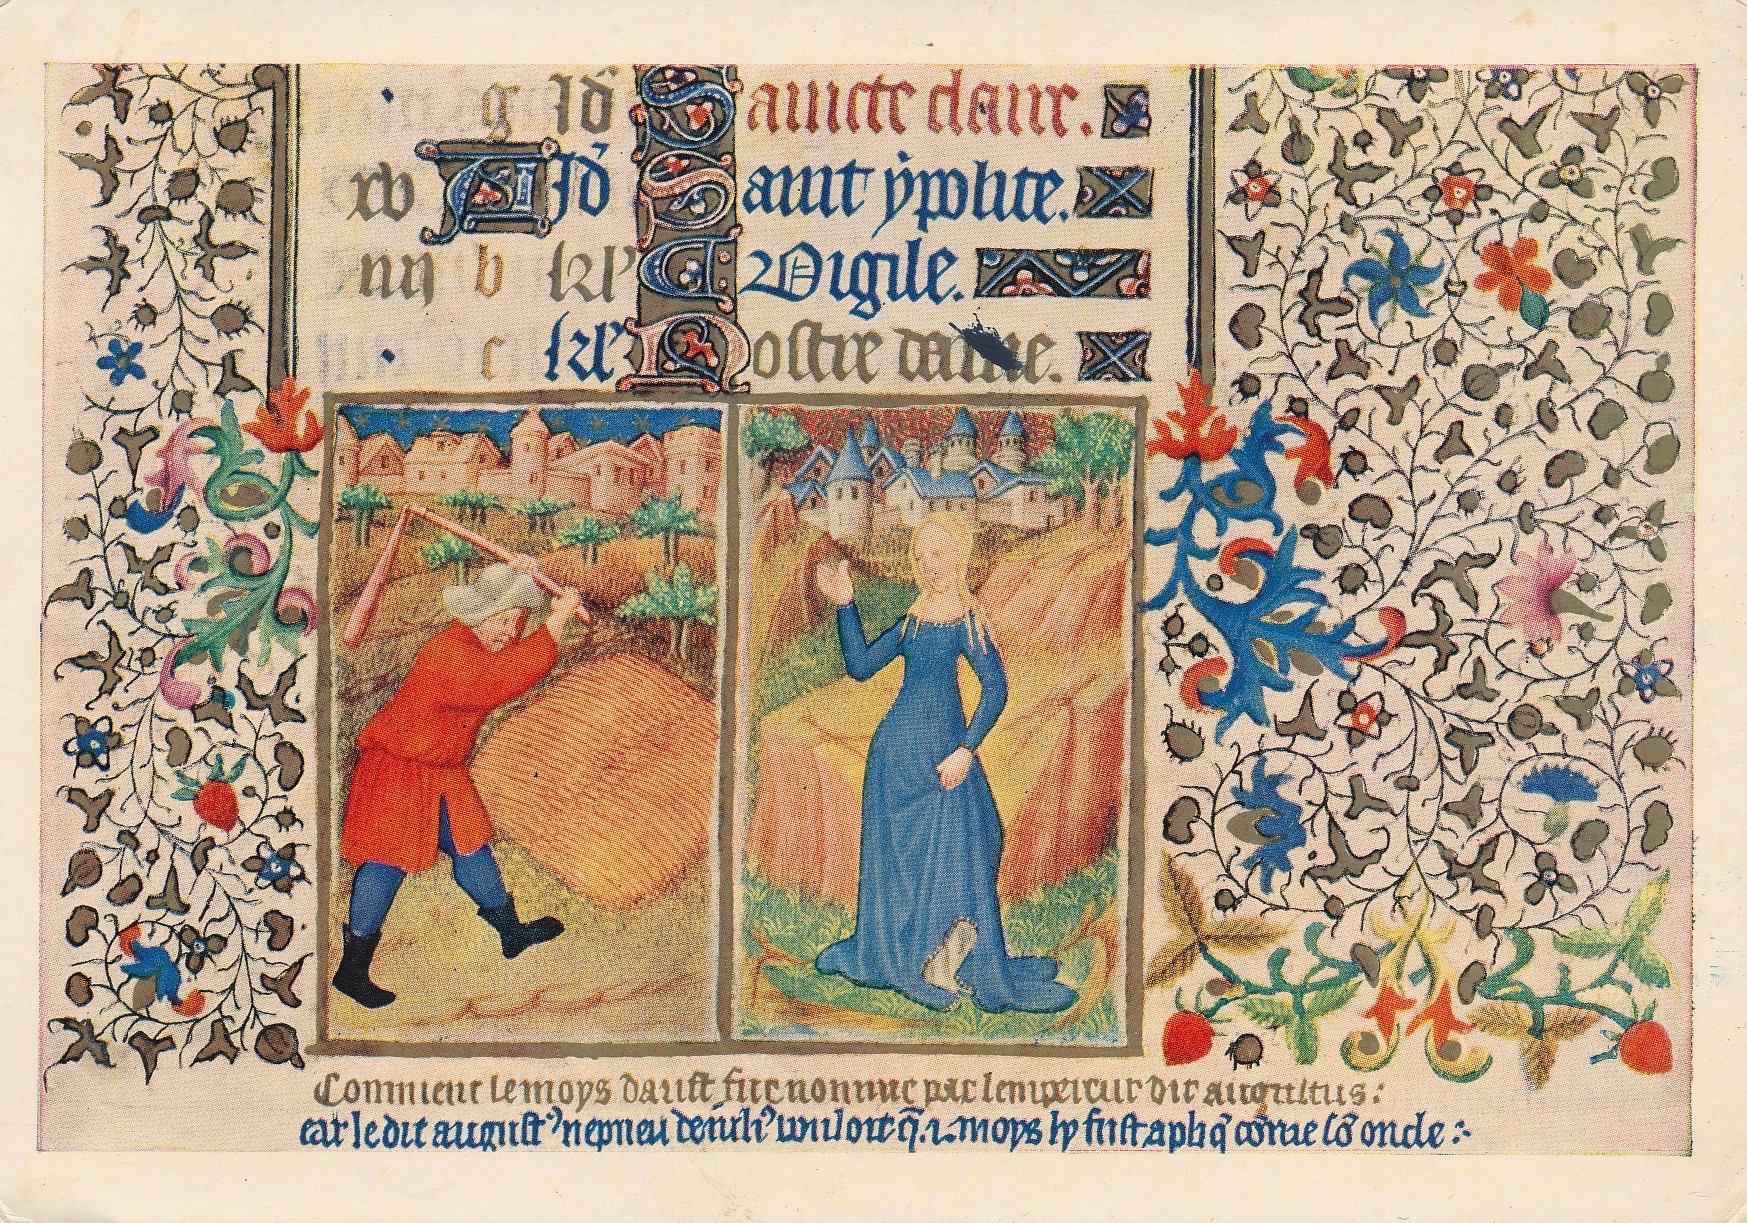 g Id Saincte claire.
xv A Id Saint ypolite.
iiij b kl' Vigile.
c kl' Nostre dame.
Comment le moys daust fut nomme par lempereur dit augustus:
car ledit august' nepueu de iuli' voulort q̄ .i. moys ly fust apliq̄ come sō oncle :~